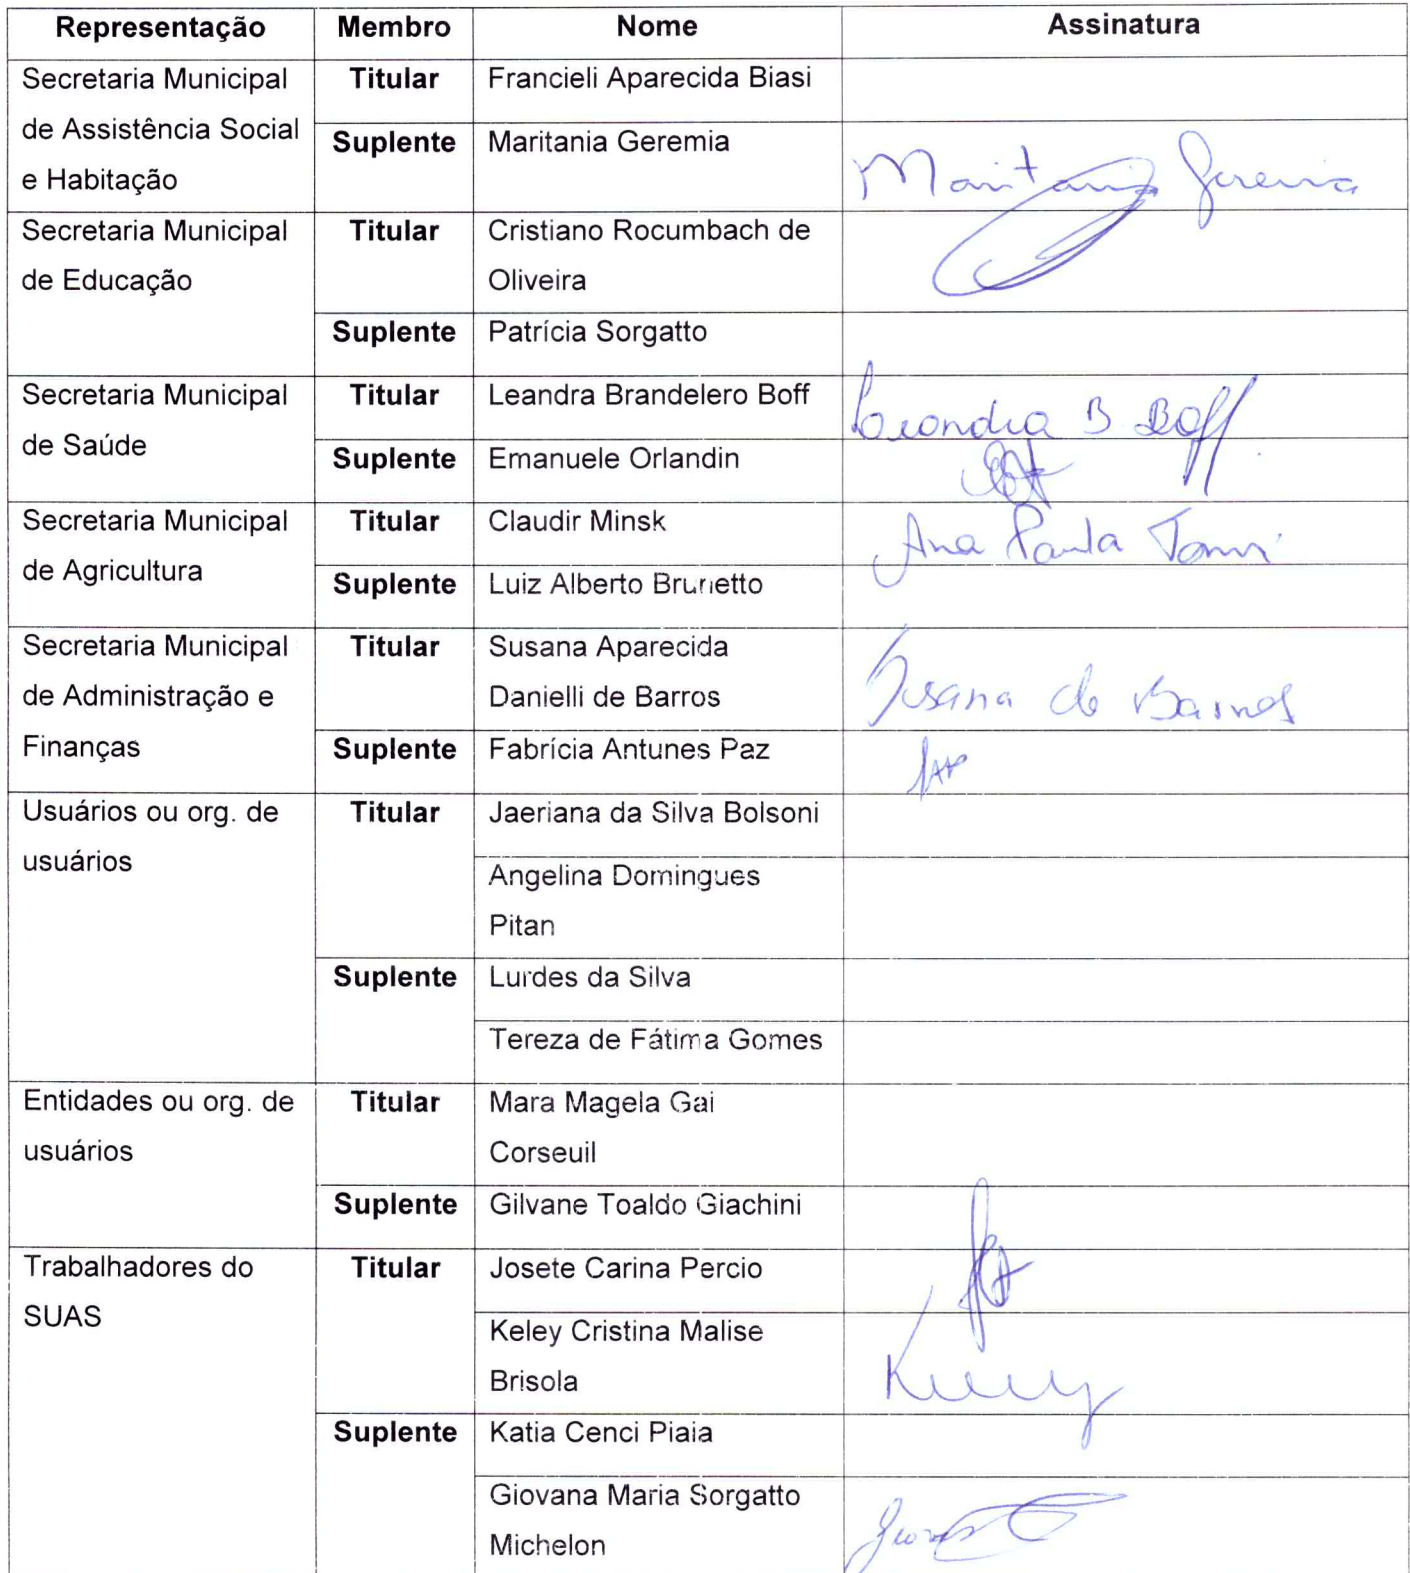 Representação Membro Nome Assinatura
Secretaria Municipal
de Assistência Social
e Habitação
Titular Francieli Aparecida Biasi
Suplente Maritania Geremia Maritania Geremia
Secretaria Municipal
de Educação
Titular Cristiano Rocumbach de
Oliveira
Suplente Patrícia Sorgatto
Secretaria Municipal
de Saúde
Titular Leandra Brandelero Boff Leandra B Boff
Suplente Emanuele Orlandin
Secretaria Municipal
de Agricultura
Titular Claudir Minsk Ana Paula
Suplente Luiz Alberto Brunetto
Secretaria Municipal
de Administração e
Finanças
Titular Susana Aparecida
Danielli de Barros
Susana de Barros
Suplente Fabrícia Antunes Paz
Usuários ou org. de
usuários
Titular Jaeriana da Silva Bolsoni
Angelina Domingues
Pitan
Suplente Lurdes da Silva
Tereza de Fátima Gomes
Entidades ou org. de
usuários
Titular Mara Magela Gai
Corseuil
Suplente Gilvane Toaldo Giachini
Trabalhadores do
SUAS
Titular Josete Carina Percio
Keley Cristina Malise
Brisola
Suplente Katia Cenci Piaia
Giovana Maria Sorgatto
Michelon